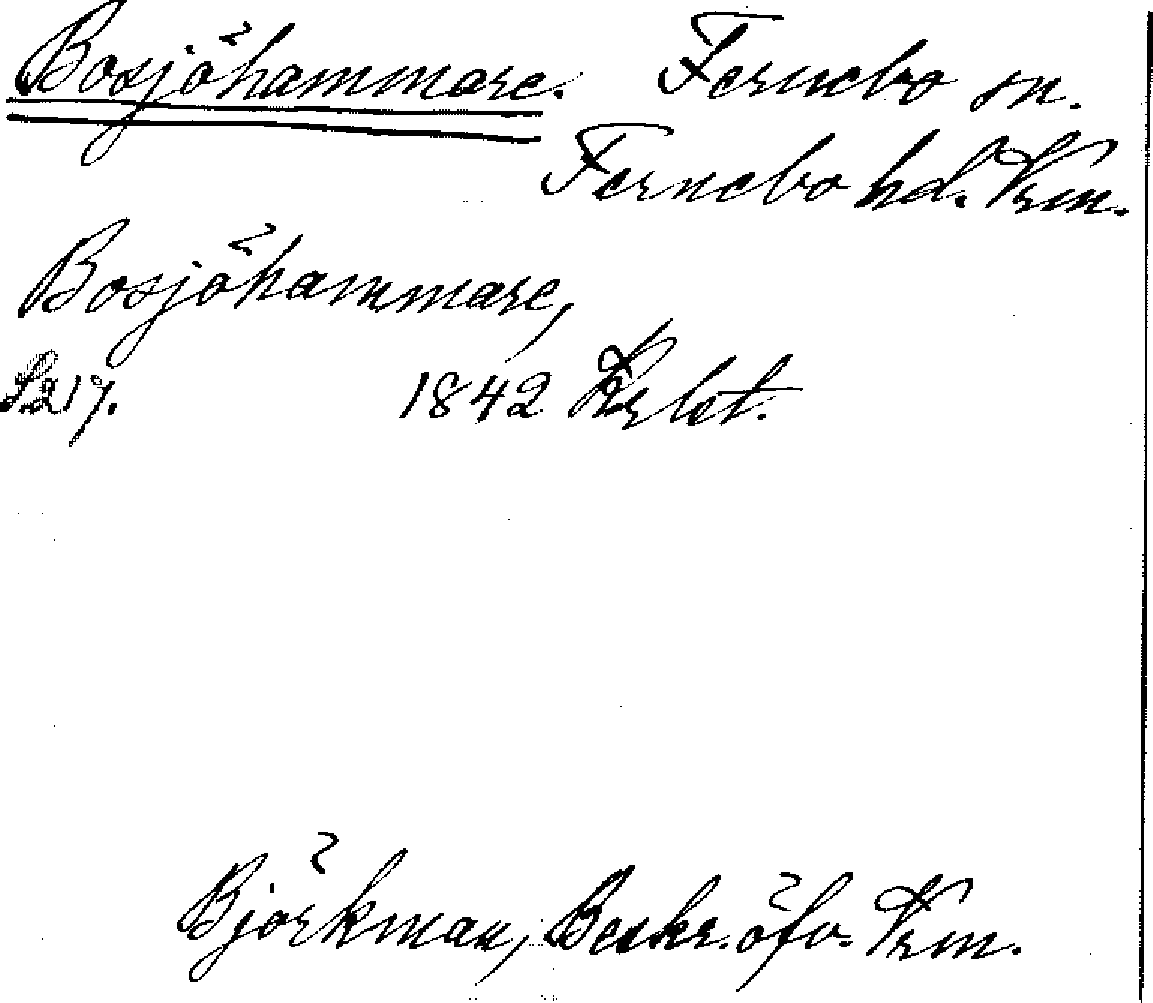 Bosjöhammare. Fernebo sn.
Fernebo hd. Vrm.
Bosjöhammare,
S. 217. 1842 Krlst.
Björkman, Beskr. öfv. Vrm.